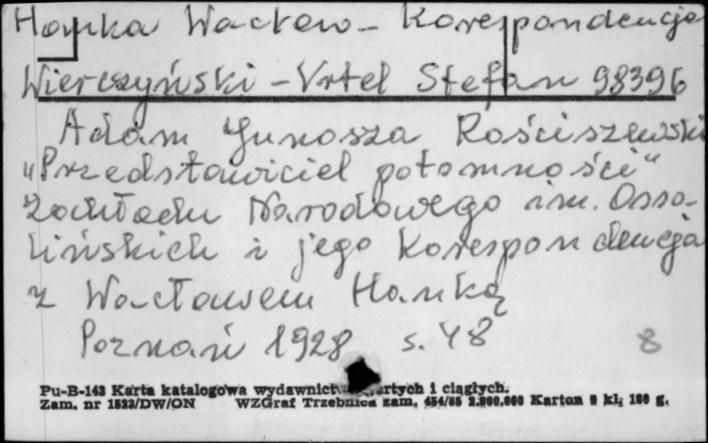 Hanka Wacław - Korespondencja
Wierczyński - Vrtel Stefan 98396
Adam Junosza Rościszewski
"Przedstawiciel potomności"
Zakładu Narodowego im. Osso-
lińskich i jego korespondencja
z Wacławem Hanką
Poznań 1928 s. 48 8
Pu-B-143 Karta katalogowa wydawnictw zwartych i ciągłych.
Zam. nr 1523/DW/ON WZGraf Trzebnica zam. 454/85 2.200.000 Karton 9 kl; 180 g.